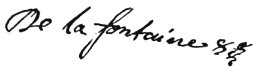 De la fontaine